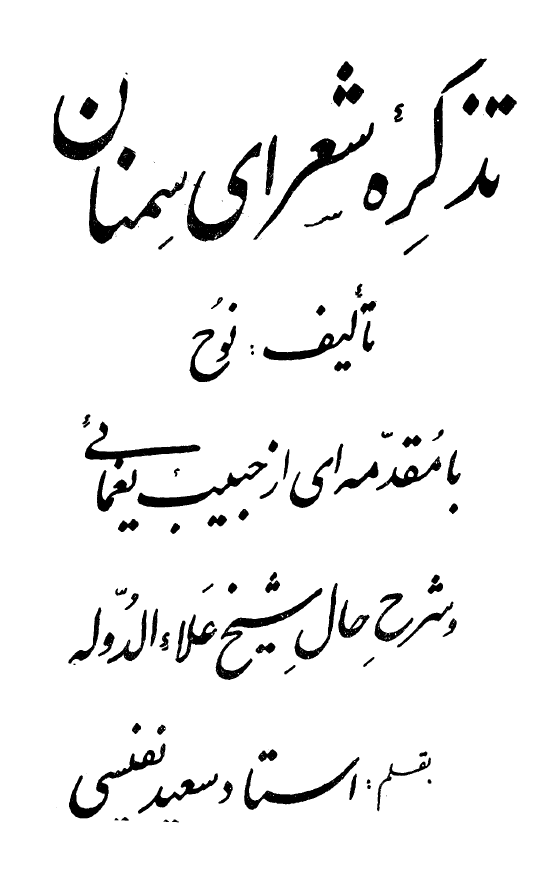 تذکرهٔ شعرای سمنان
تألیف: نوح
با مقدّمه ای از حبیب یغمائی
و شرح حال شیخ علاء الدّوله
بقلم: استاد سعید نفیسی